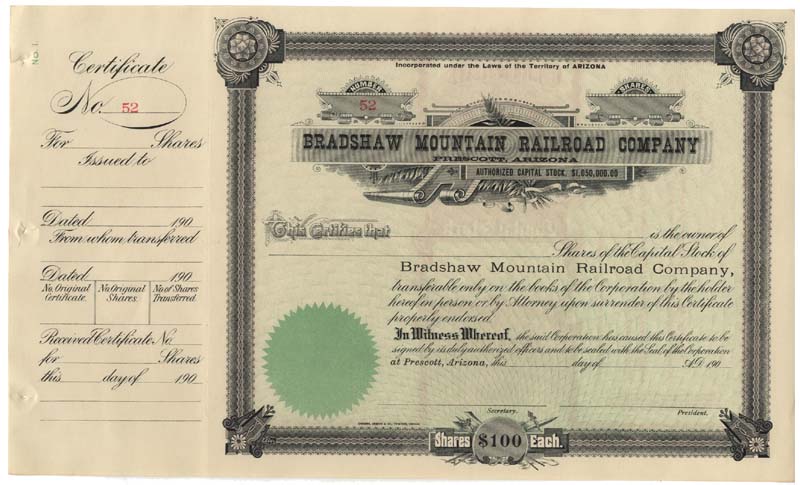 No. 1.
Certificate
No. 52
For Shares
Issued to
Dated 190
From whom transferred
Dated 190
No. Original Certificate.
No. Original Shares.
No. of Shares Transferred.
Received Certificate No.
for Shares
this day of 190
Incorporated under the Laws of the Territory of ARIZONA
NUMBER
52
SHARES
BRADSHAW MOUNTAIN RAILROAD COMPANY
PRESCOTT, ARIZONA
AUTHORIZED CAPITAL STOCK, $1,050,000.00
This Certifies that is the owner of
Shares of the Capital Stock of
Bradshaw Mountain Railroad Company,
transferable only on the books of the Corporation by the holder
hereof in person or by Attorney upon surrender of this Certificate
properly endorsed.
In Witness Whereof, the said Corporation has caused this Certificate to be
signed by its duly authorized officers and to be sealed with the Seal of the Corporation
at Prescott, Arizona, this day of A.D. 190
Secretary. President.
Shares $100 Each.